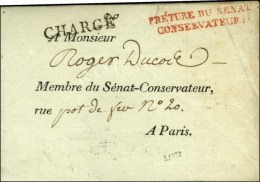 CHARGÉ
PRÉTURE DU SÉNAT
CONSERVATEUR.
A Monsieur
Roger Ducos
Membre du Sénat-Conservateur,
rue pot de fer N° 20.
A Paris.